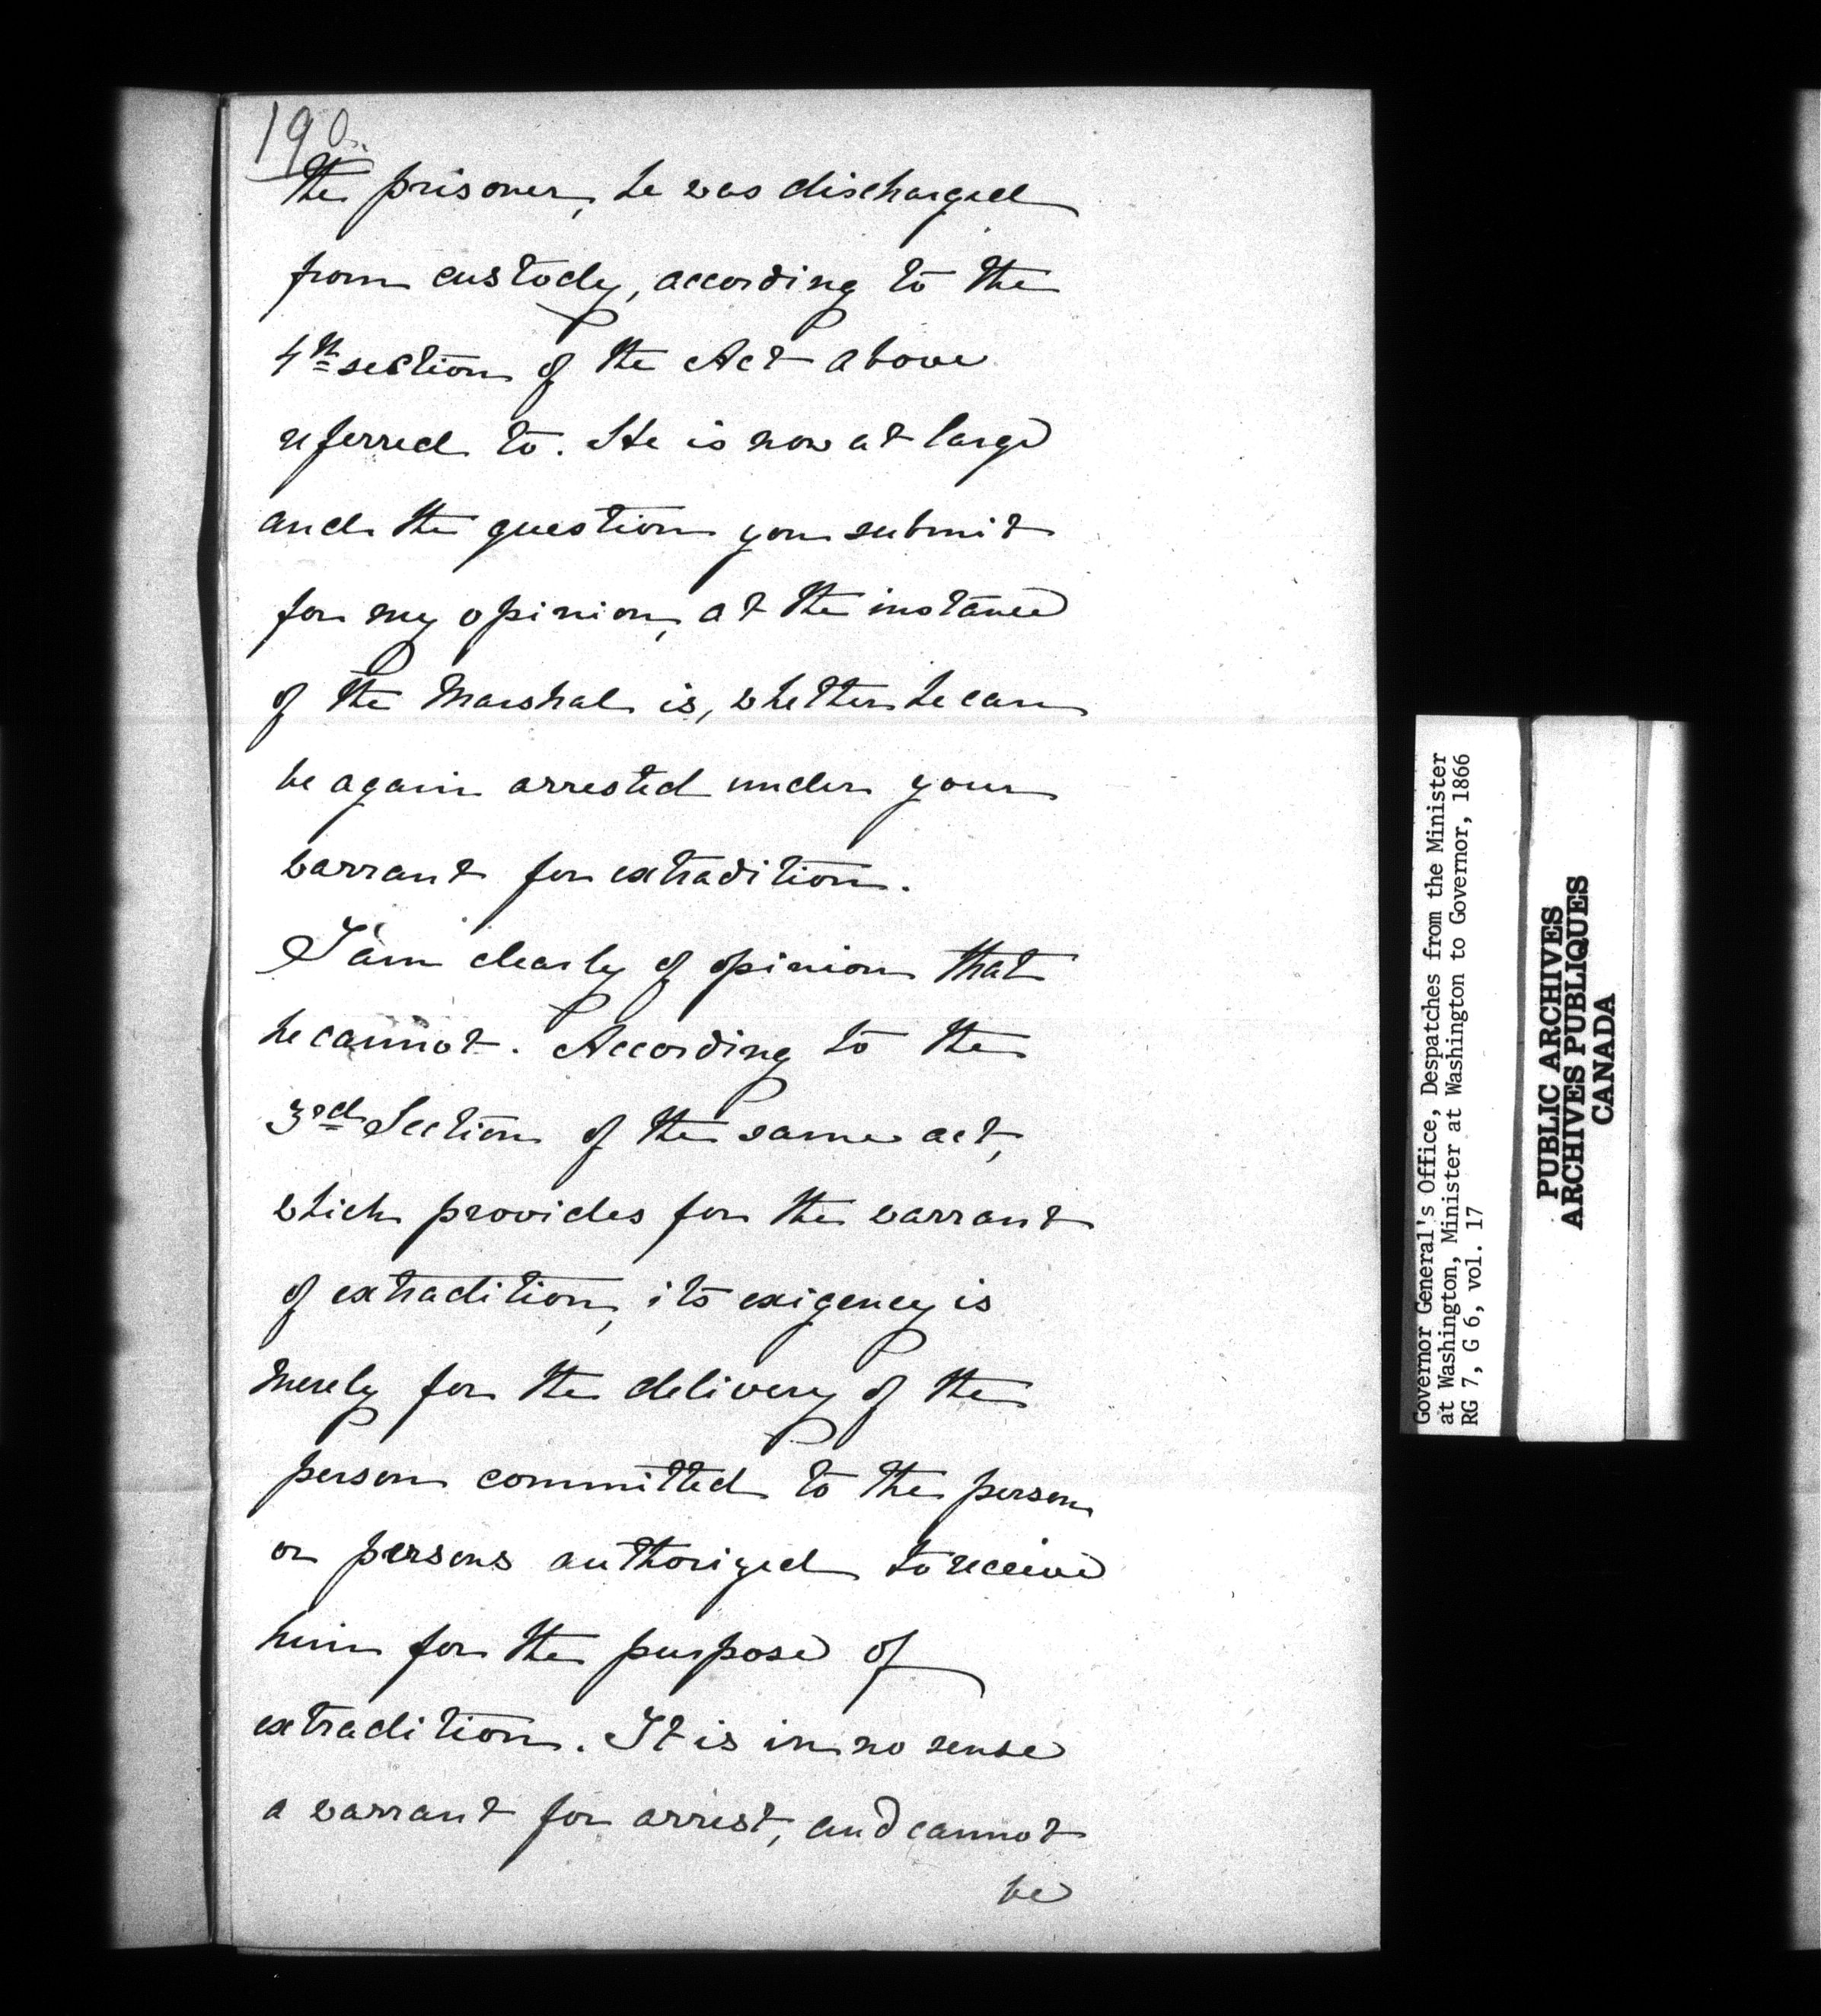 190
the prisoner, he was discharged
from custody, according to the
4th section of the Act above
referred to. He is now at large
and the question you submit
for my opinion, at the instance
of the Marshal is, whether he can
be again arrested under your
warrant for extradition.
I am clearly of opinion that
he cannot. According to the
3rd Section of the same act,
which provides for the warrant
of extradition, its exigency is
merely for the delivery of the
person committed to the person
or persons authorized to receive
him for the purpose of
extradition. It is in no sense
a warrant for arrest, and cannot
be
Governor General's Office, Despatches from the Minister
at Washington, Minister at Washington to Governor, 1866
RG 7, G 6, vol. 17
PUBLIC ARCHIVES
ARCHIVES PUBLIQUES
CANADA